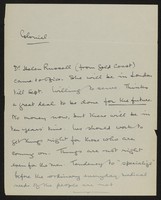 Colonial
Dr Helen Russell (from Gold Coast)
came to office. She will be in London
till Sept. Willing to Thinks
a great deal to be done for the future.
No money now, but there will be in
ten years time. We should work to
get things right for those who are
coming on. Things are not right
even for the men. Tendency to specialise
before the ordinary everyday medical
needs of the people are met.